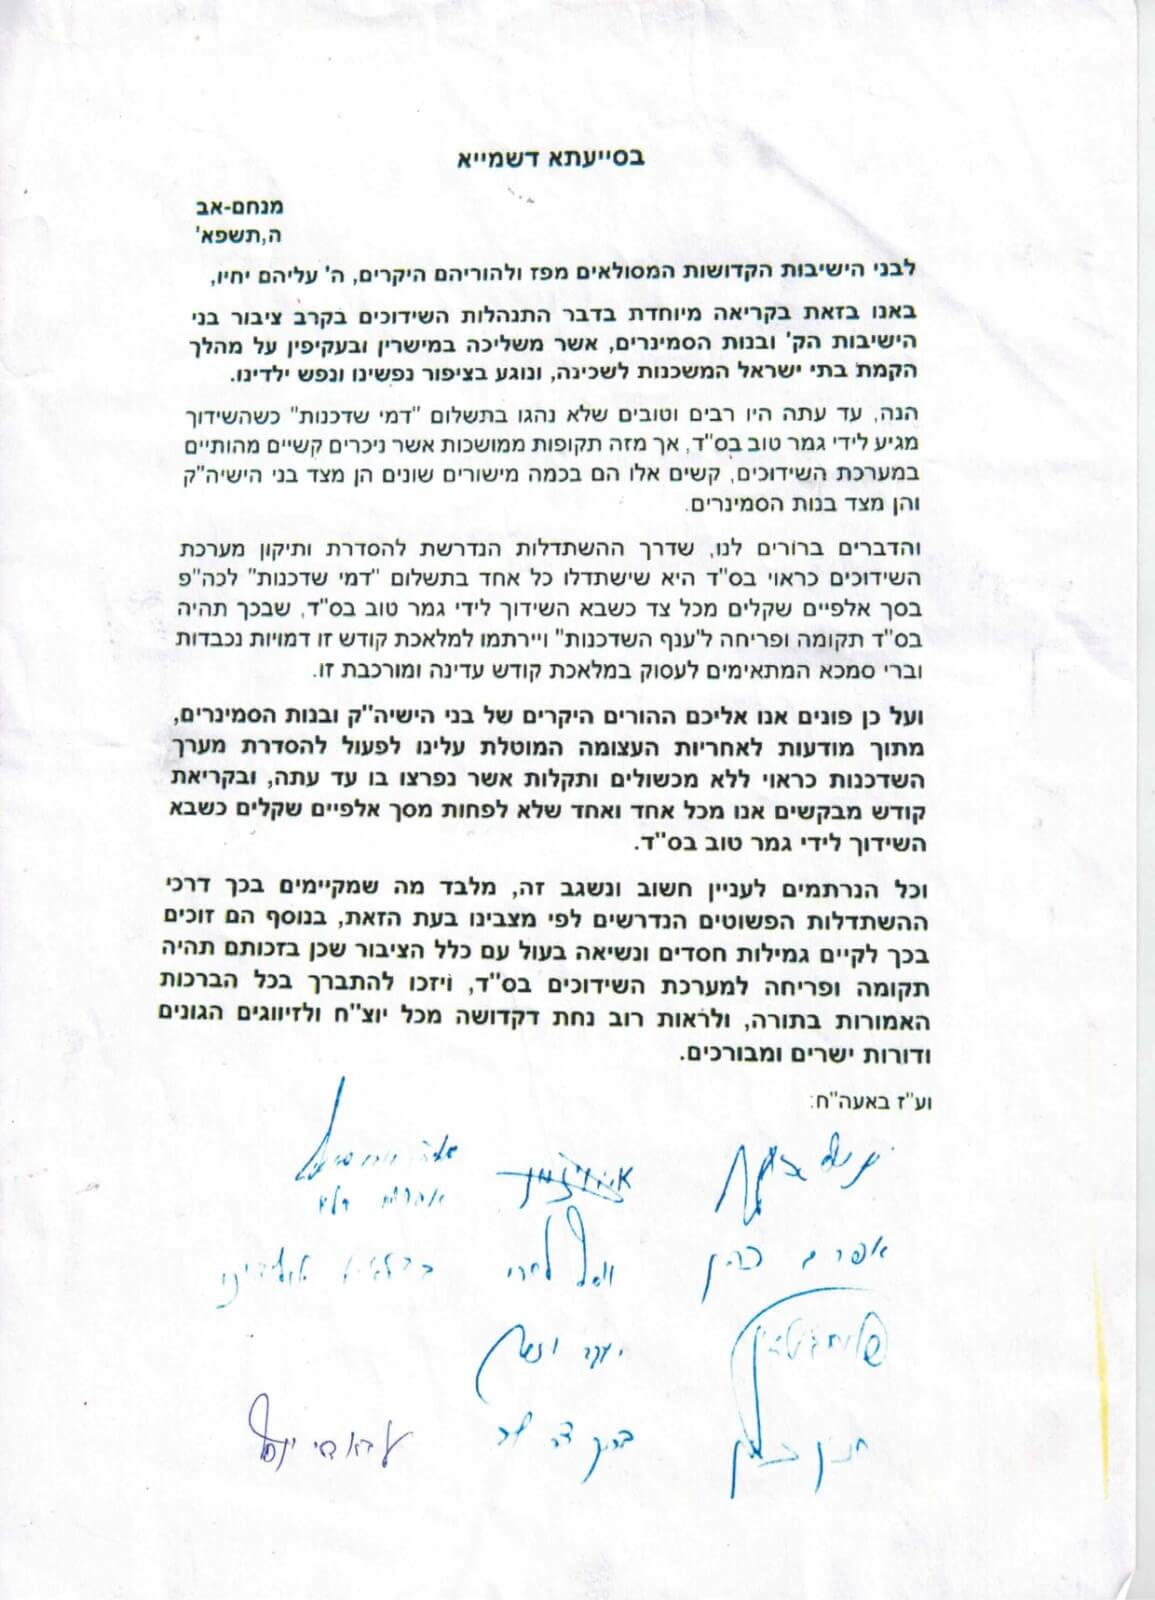 בסייעתא דשמייא
מנחם-אב
ה,תשפא'
לבני הישיבות הקדושות המסולאים מפז ולהוריהם היקרים, ה' עליהם יחיו,
באנו בזאת בקריאה מיוחדת בדבר התנהלות השידוכים בקרב ציבור בני
הישיבות הק' ובנות הסמינרים, אשר משליכה במישרין ובעקיפין על מהלך
הקמת בתי ישראל המשכנות לשכינה, ונוגע בציפור נפשינו ונפש ילדינו.
הנה, עד עתה היו רבים וטובים שלא נהגו בתשלום "דמי שדכנות" כשהשידוך
מגיע לידי גמר טוב בס"ד, אך מזה תקופות ממושכות אשר ניכרים קשיים מהותיים
במערכת השידוכים, קשים אלו הם בכמה מישורים שונים הן מצד בני הישיה"ק
והן מצד בנות הסמינרים.
והדברים ברורים לנו, שדרך ההשתדלות הנדרשת להסדרת ותיקון מערכת
השידוכים כראוי בס"ד היא שישתדלו כל אחד בתשלום "דמי שדכנות" לכה"פ
בסך אלפיים שקלים מכל צד כשבא השידוך לידי גמר טוב בס"ד, שבכך תהיה
בס"ד תקומה ופריחה ל"ענף השדכנות" ויירתמו למלאכת קודש זו דמויות נכבדות
וברי סמכא המתאימים לעסוק במלאכת קודש עדינה ומורכבת זו.
ועל כן פונים אנו אליכם ההורים היקרים של בני הישיה"ק ובנות הסמינרים,
מתוך מודעות לאחריות העצומה המוטלת עלינו לפעול להסדרת מערך
השדכנות כראוי ללא מכשולים ותקלות אשר נפרצו בו עד עתה, ובקריאת
קודש מבקשים אנו מכל אחד ואחד שלא לפחות מסך אלפיים שקלים כשבא
השידוך לידי גמר טוב בס"ד.
וכל הנרתמים לעניין חשוב ונשגב זה, מלבד מה שמקיימים בכך דרכי
ההשתדלות הפשוטים הנדרשים לפי מצבינו בעת הזאת, בנוסף הם זוכים
בכך לקיים גמילות חסדים ונשיאה בעול עם כלל הציבור שכן בזכותם תהיה
תקומה ופריחה למערכת השידוכים בס"ד, ויזכו להתברך בכל הברכות
האמורות בתורה, ולראות רוב נחת דקדושה מכל יוצ"ח ולזיווגים הגונים
ודורות ישרים ומבורכים.
וע"ז באעה"ח:
אפרים כהן